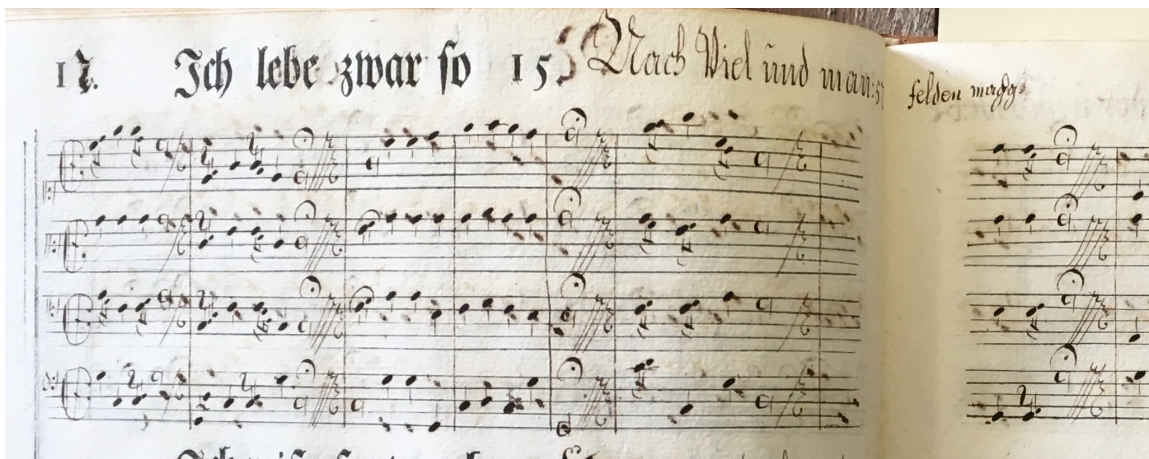 17. Ich lebe zwar so 15. Nach Viel und man:
felden